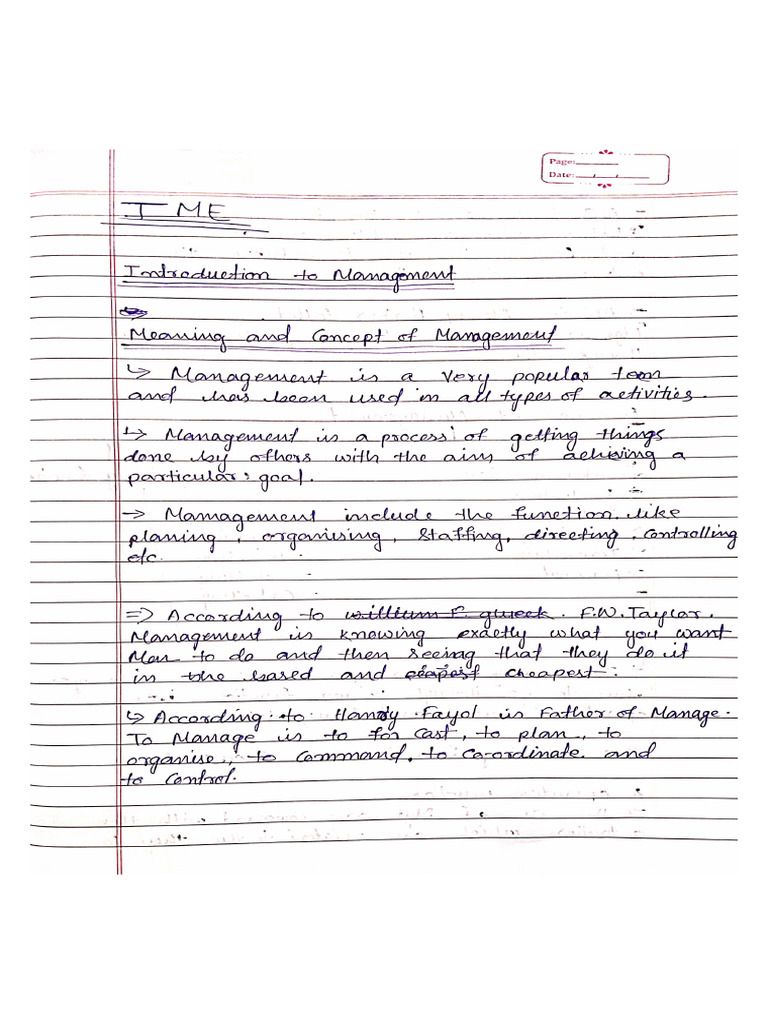 Page:
Date: / /
I ME
Introduction to Management
Meaning and Concept of Management
↳ Management is a very popular teom
and has been used in all types of activities.
↳ Management is a process of getting things
done by others with the aim of achiving a
particular goal.
→ Management include the function like
planing, organising, staffing, directing, controlling
etc.
⇒ According to willium F. glueck. F.W. Taylor.
Management is knowing exactly what you want
Man to do and then seeing that they do it
in the based and cheapest
↳ According to Hanry Fayol is Father of Manage.
To Manage is to for cast, to plan, to
organise, to command, to co-ordinate and
to control.